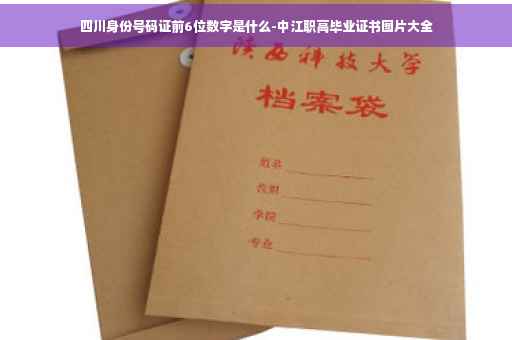 四川身份号码证前6位数字是什么-中江职高毕业证书图片大全
陕西科技大学
档案袋
姓名
教职
学院
专业